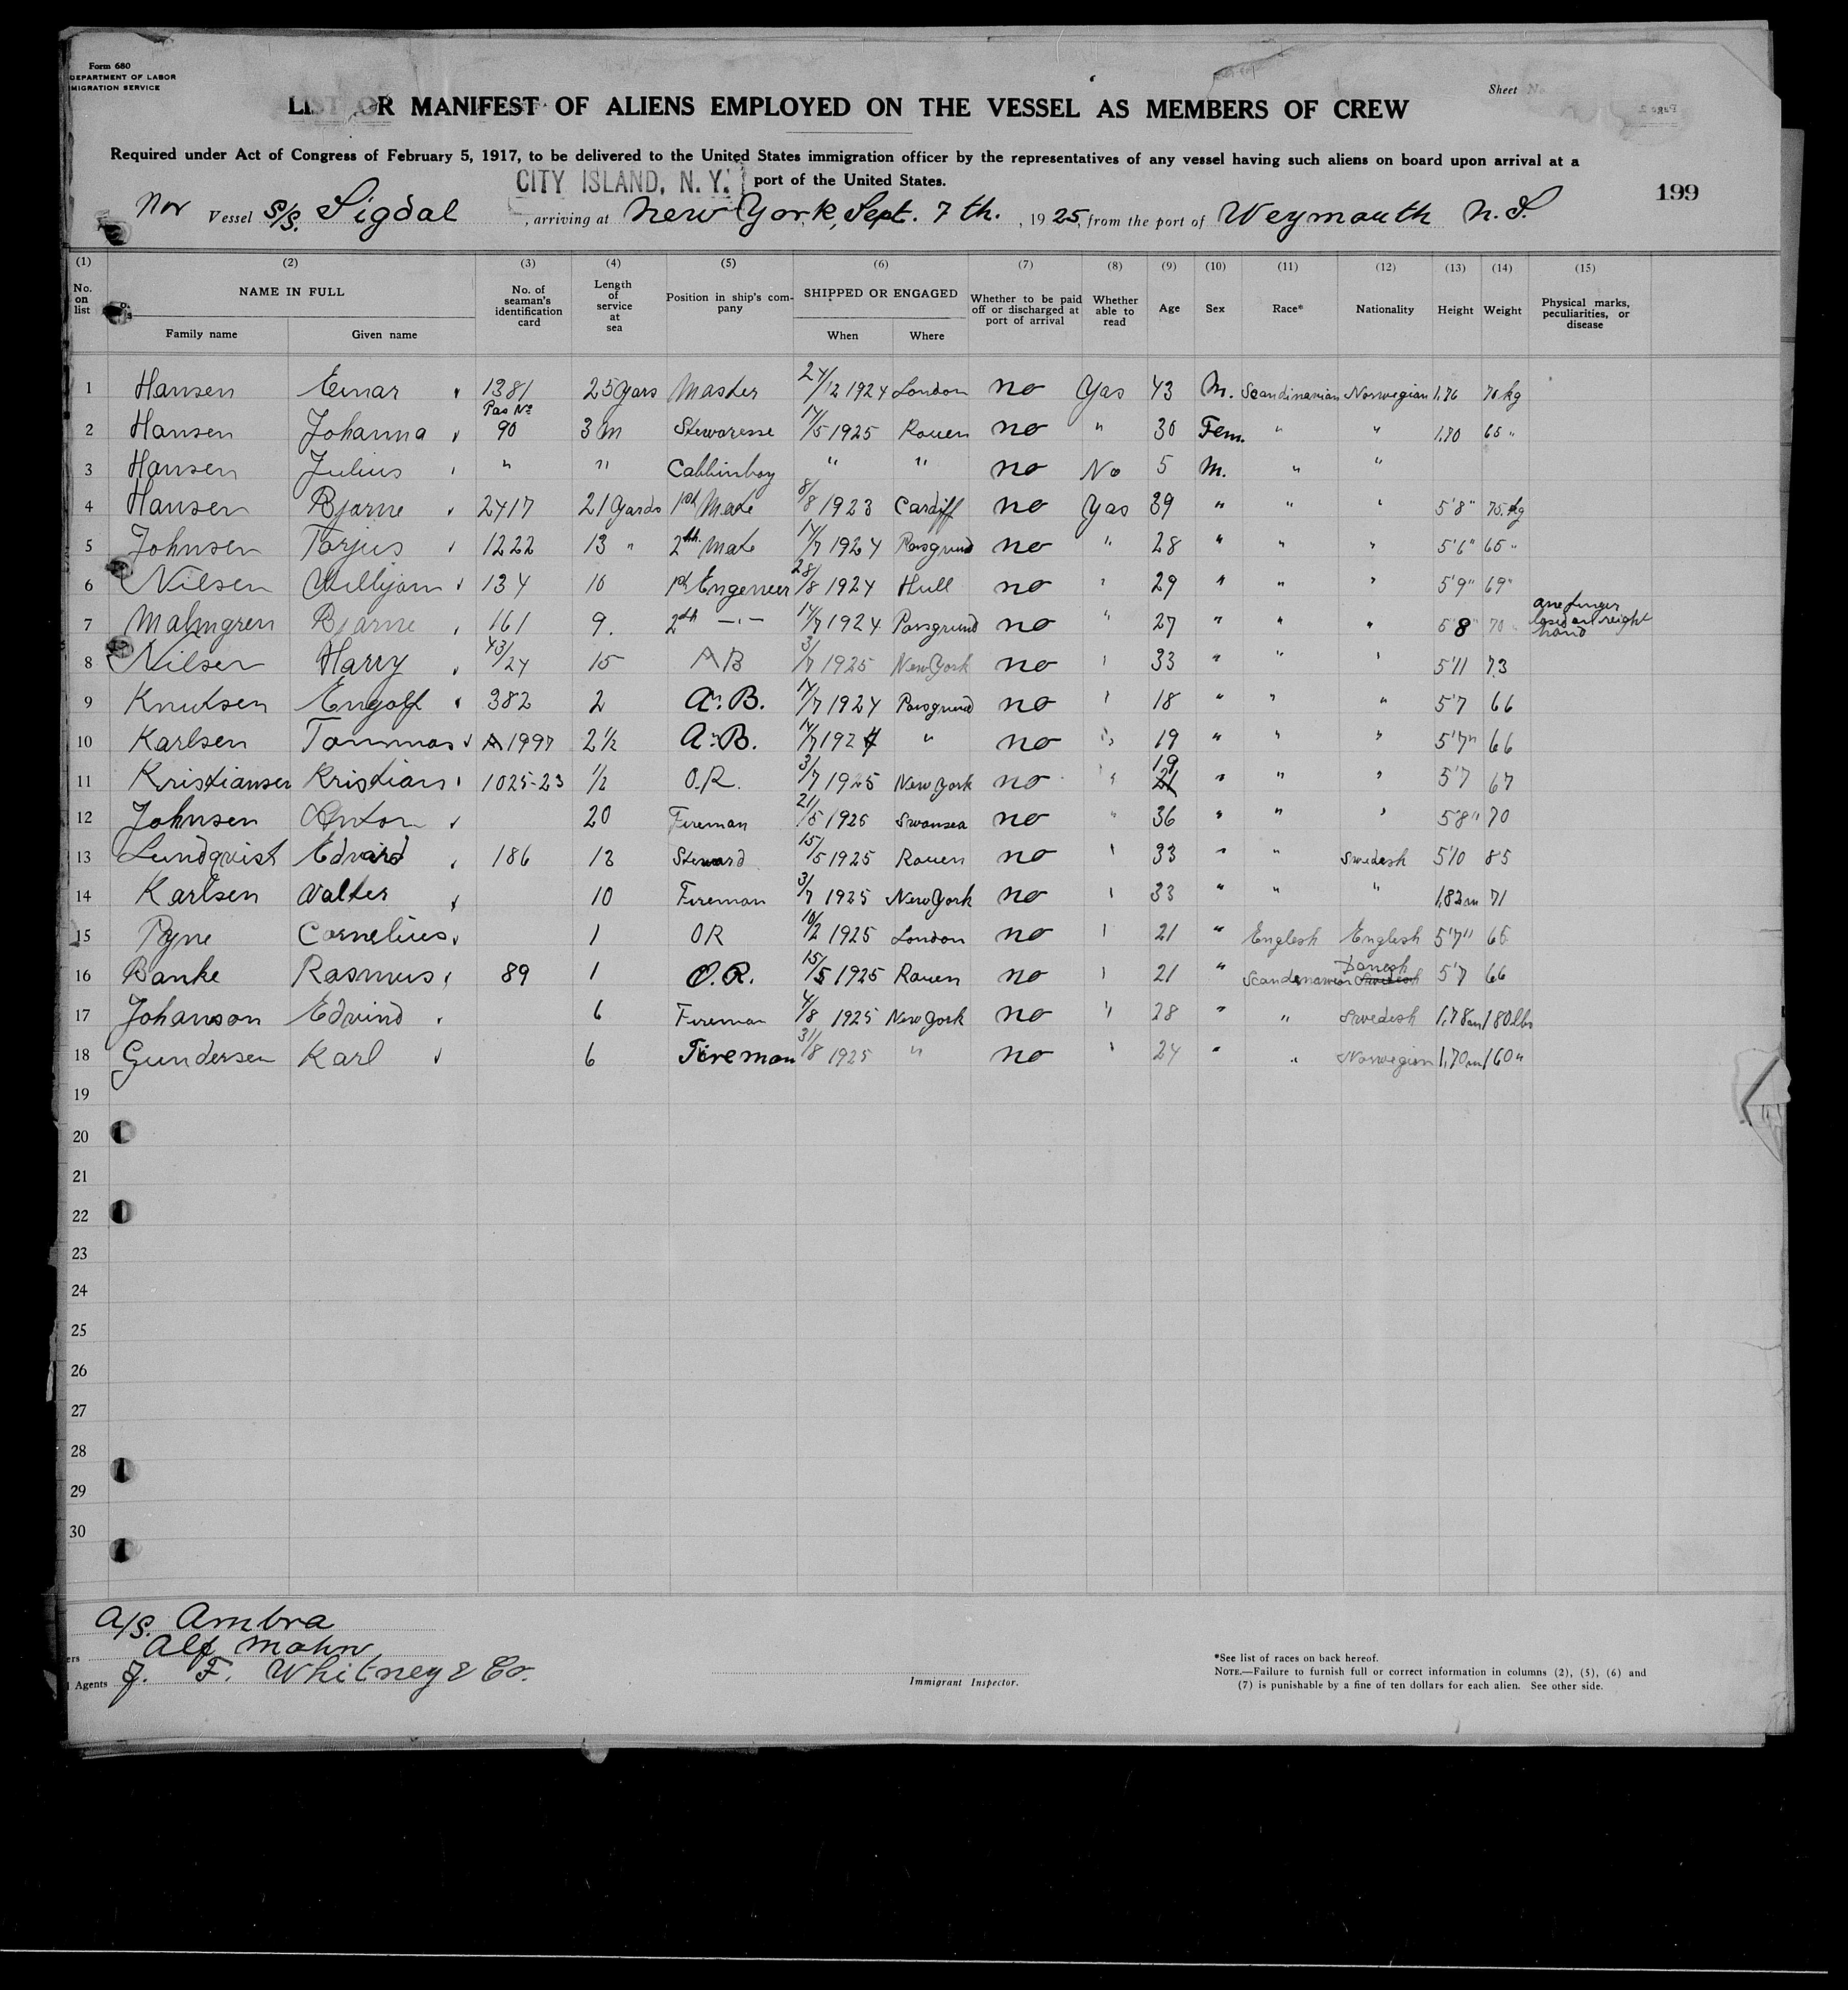 Form 680
DEPARTMENT OF LABOR
MIGRATION SERVICE
Sheet No.
Page 2
LIST OR MANIFEST OF ALIENS EMPLOYED ON THE VESSEL AS MEMBERS OF CREW
Required under Act of Congress of February 5, 1917, to be delivered to the United States immigration officer by the representatives of any vessel having such aliens on board upon arrival at a
port of the United States.
CITY ISLAND, N.Y.
199
Nor Vessel S/S. Sigdal , arriving at New York, Sept. 7 th. , 1925, from the port of Weymouth N.S.
(1) (2) (3) (4) (5) (6) (7) (8) (9) (10) (11) (12) (13) (14) (15)
No. on list NAME IN FULL Family name Given name No. of seaman's identification card Length of service at sea Position in ship's company SHIPPED OR ENGAGED When Where Whether to be paid off or discharged at port of arrival Whether able to read Age Sex Race* Nationality Height Weight Physical marks, peculiarities, or disease
1 Hansen Einar 1381 25 Yars Master 24/12 1924 London no Yas 43 M. Scandinavian Norwegian 1,76 76 kg
2 Hansen Johanna Pas No 90 3 m Stewaresse 17/5 1925 Rouen no " 30 Fem. " " 1.70 65 "
3 Hansen Julius " " Cabbinboy " " no No 5 M. " "
4 Hansen Bjarne 2417 21 Yards 1st Mate 8/8 1923 Cardiff no Yas 39 " " " 5'8" 75.kg
5 Johnsen Torjus 1222 13 " 2th Mate 17/7 1924 Porsgrund no " 28 " " " 5'6" 65 "
6 Nilsen Willijam 134 10 1st Engeneer 28/8 1924 Hull no " 29 " " " 5'9" 69 "
7 Malmgren Bjarne 161 9. 2th —"— 17/7 1924 Porsgrund no " 27 " " " 5'8" 70 " one finger losed on reight hand
8 Nilsen Harry 43/24 15 AB 3/7 1925 New York no " 33 " " " 5'11 73
9 Knutsen Engolf 382 2 A.B. 17/7 1924 Porsgrund no " 18 " " " 5'7 66
10 Karlsen Tommas A 1997 2½ A.B. 17/7 1924 " no " 19 " " " 5'7" 66
11 Kristiansen Kristian 1025-23 ½ O.R. 3/7 1925 New York no " 19 21 " " " 5'7 67
12 Johnsen Anton 20 Fireman 21/5 1925 Swansea no " 36 " " " 5'8" 70
13 Lundqvist Edvard 186 13 Steward 15/5 1925 Rouen no " 33 " " Swedesh 5'10 85
14 Karlsen Valter 10 Fireman 3/7 1925 New York no " 33 " " " 1,82m 71
15 Pyne Cornelius 1 OR 10/2 1925 London no " 21 " Englesh Englesh 5'7" 65
16 Banke Rasmus 89 1 O.R. 15/5 1925 Rouen no " 21 " Scandenavian Danesh Swedesh 5'7 66
17 Johanson Edvind 6 Fireman 4/8 1925 New York no " 28 " " Swedesh 1,78m 180 lbs
18 Gundersen Karl 6 Fireman 31/8 1925 " no " 24 " " Norwegian 1,70m 160 "
19
20
21
22
23
24
25
26
27
28
29
30
A/S. Ambra
ers Alf Mohn
Agents J. F. Whitney & Co.
Immigrant Inspector.
*See list of races on back hereof.
NOTE.—Failure to furnish full or correct information in columns (2), (5), (6) and
(7) is punishable by a fine of ten dollars for each alien. See other side.